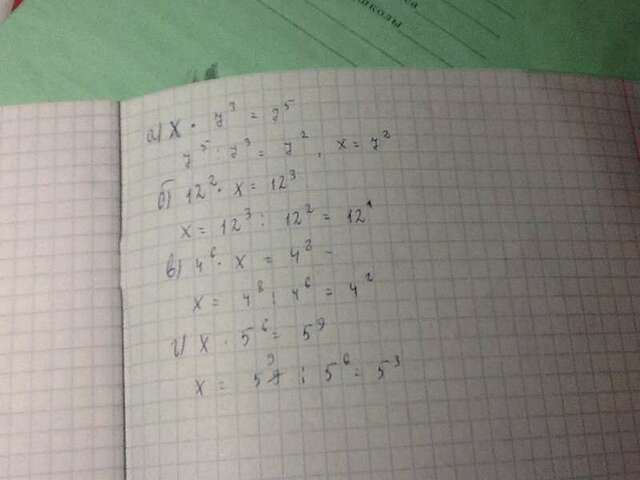 школы
а) x · y³ = y⁵
y⁵ · y³ = y², x = y²
б) 12² · x = 12³
x = 12³ : 12² = 12¹
в) 4⁶ · x = 4⁸ -
x = 4⁸ : 4⁶ = 4²
г) x · 5⁶ = 5⁹
x = 5⁹ : 5⁶ = 5³